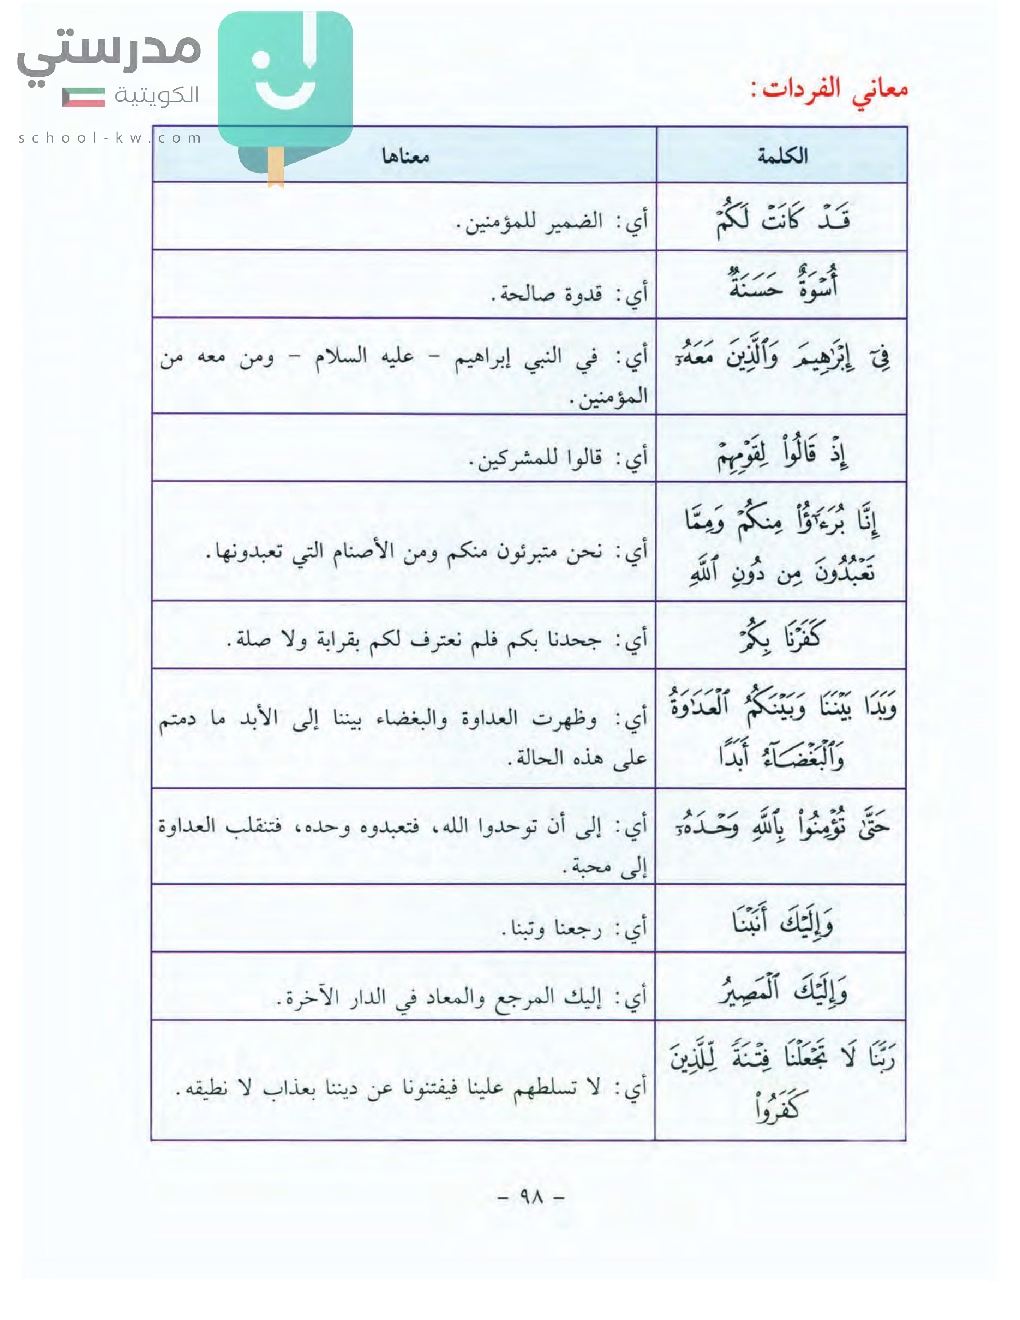 مدرستي
الكويتية
school-kw.com
معاني الفردات:
الكلمة
معناها
قَدْ كَانَتْ لَكُمْ
أي: الضمير للمؤمنين.
أُسْوَةٌ حَسَنَةٌ
أي: قدوة صالحة.
فِيٓ إِبْرَٰهِيمَ وَٱلَّذِينَ مَعَهُۥٓ
أي: في النبي إبراهيم - عليه السلام - ومن معه من
المؤمنين.
إِذْ قَالُوا۟ لِقَوْمِهِمْ
أي: قالوا للمشركين.
إِنَّا بُرَءَٰٓؤُا۟ مِنكُمْ وَمِمَّا
تَعْبُدُونَ مِن دُونِ ٱللَّهِ
أي: نحن متبرئون منكم ومن الأصنام التي تعبدونها.
كَفَرْنَا بِكُمْ
أي: جحدنا بكم فلم نعترف لكم بقرابة ولا صلة.
وَبَدَا بَيْنَنَا وَبَيْنَكُمُ ٱلْعَدَٰوَةُ
وَٱلْبَغْضَآءُ أَبَدًا
أي: وظهرت العداوة والبغضاء بيننا إلى الأبد ما دمتم
على هذه الحالة.
حَتَّىٰ تُؤْمِنُوا۟ بِٱللَّهِ وَحْدَهُۥٓ
أي: إلى أن توحدوا الله، فتعبدوه وحده، فتنقلب العداوة
إلى محبة.
وَإِلَيْكَ أَنَبْنَا
أي: رجعنا وتبنا.
وَإِلَيْكَ ٱلْمَصِيرُ
أي: إليك المرجع والمعاد في الدار الآخرة.
رَبَّنَا لَا تَجْعَلْنَا فِتْنَةً لِّلَّذِينَ
كَفَرُوا۟
أي: لا تسلطهم علينا فيفتنونا عن ديننا بعذاب لا نطيقه.
- ٩٨ -